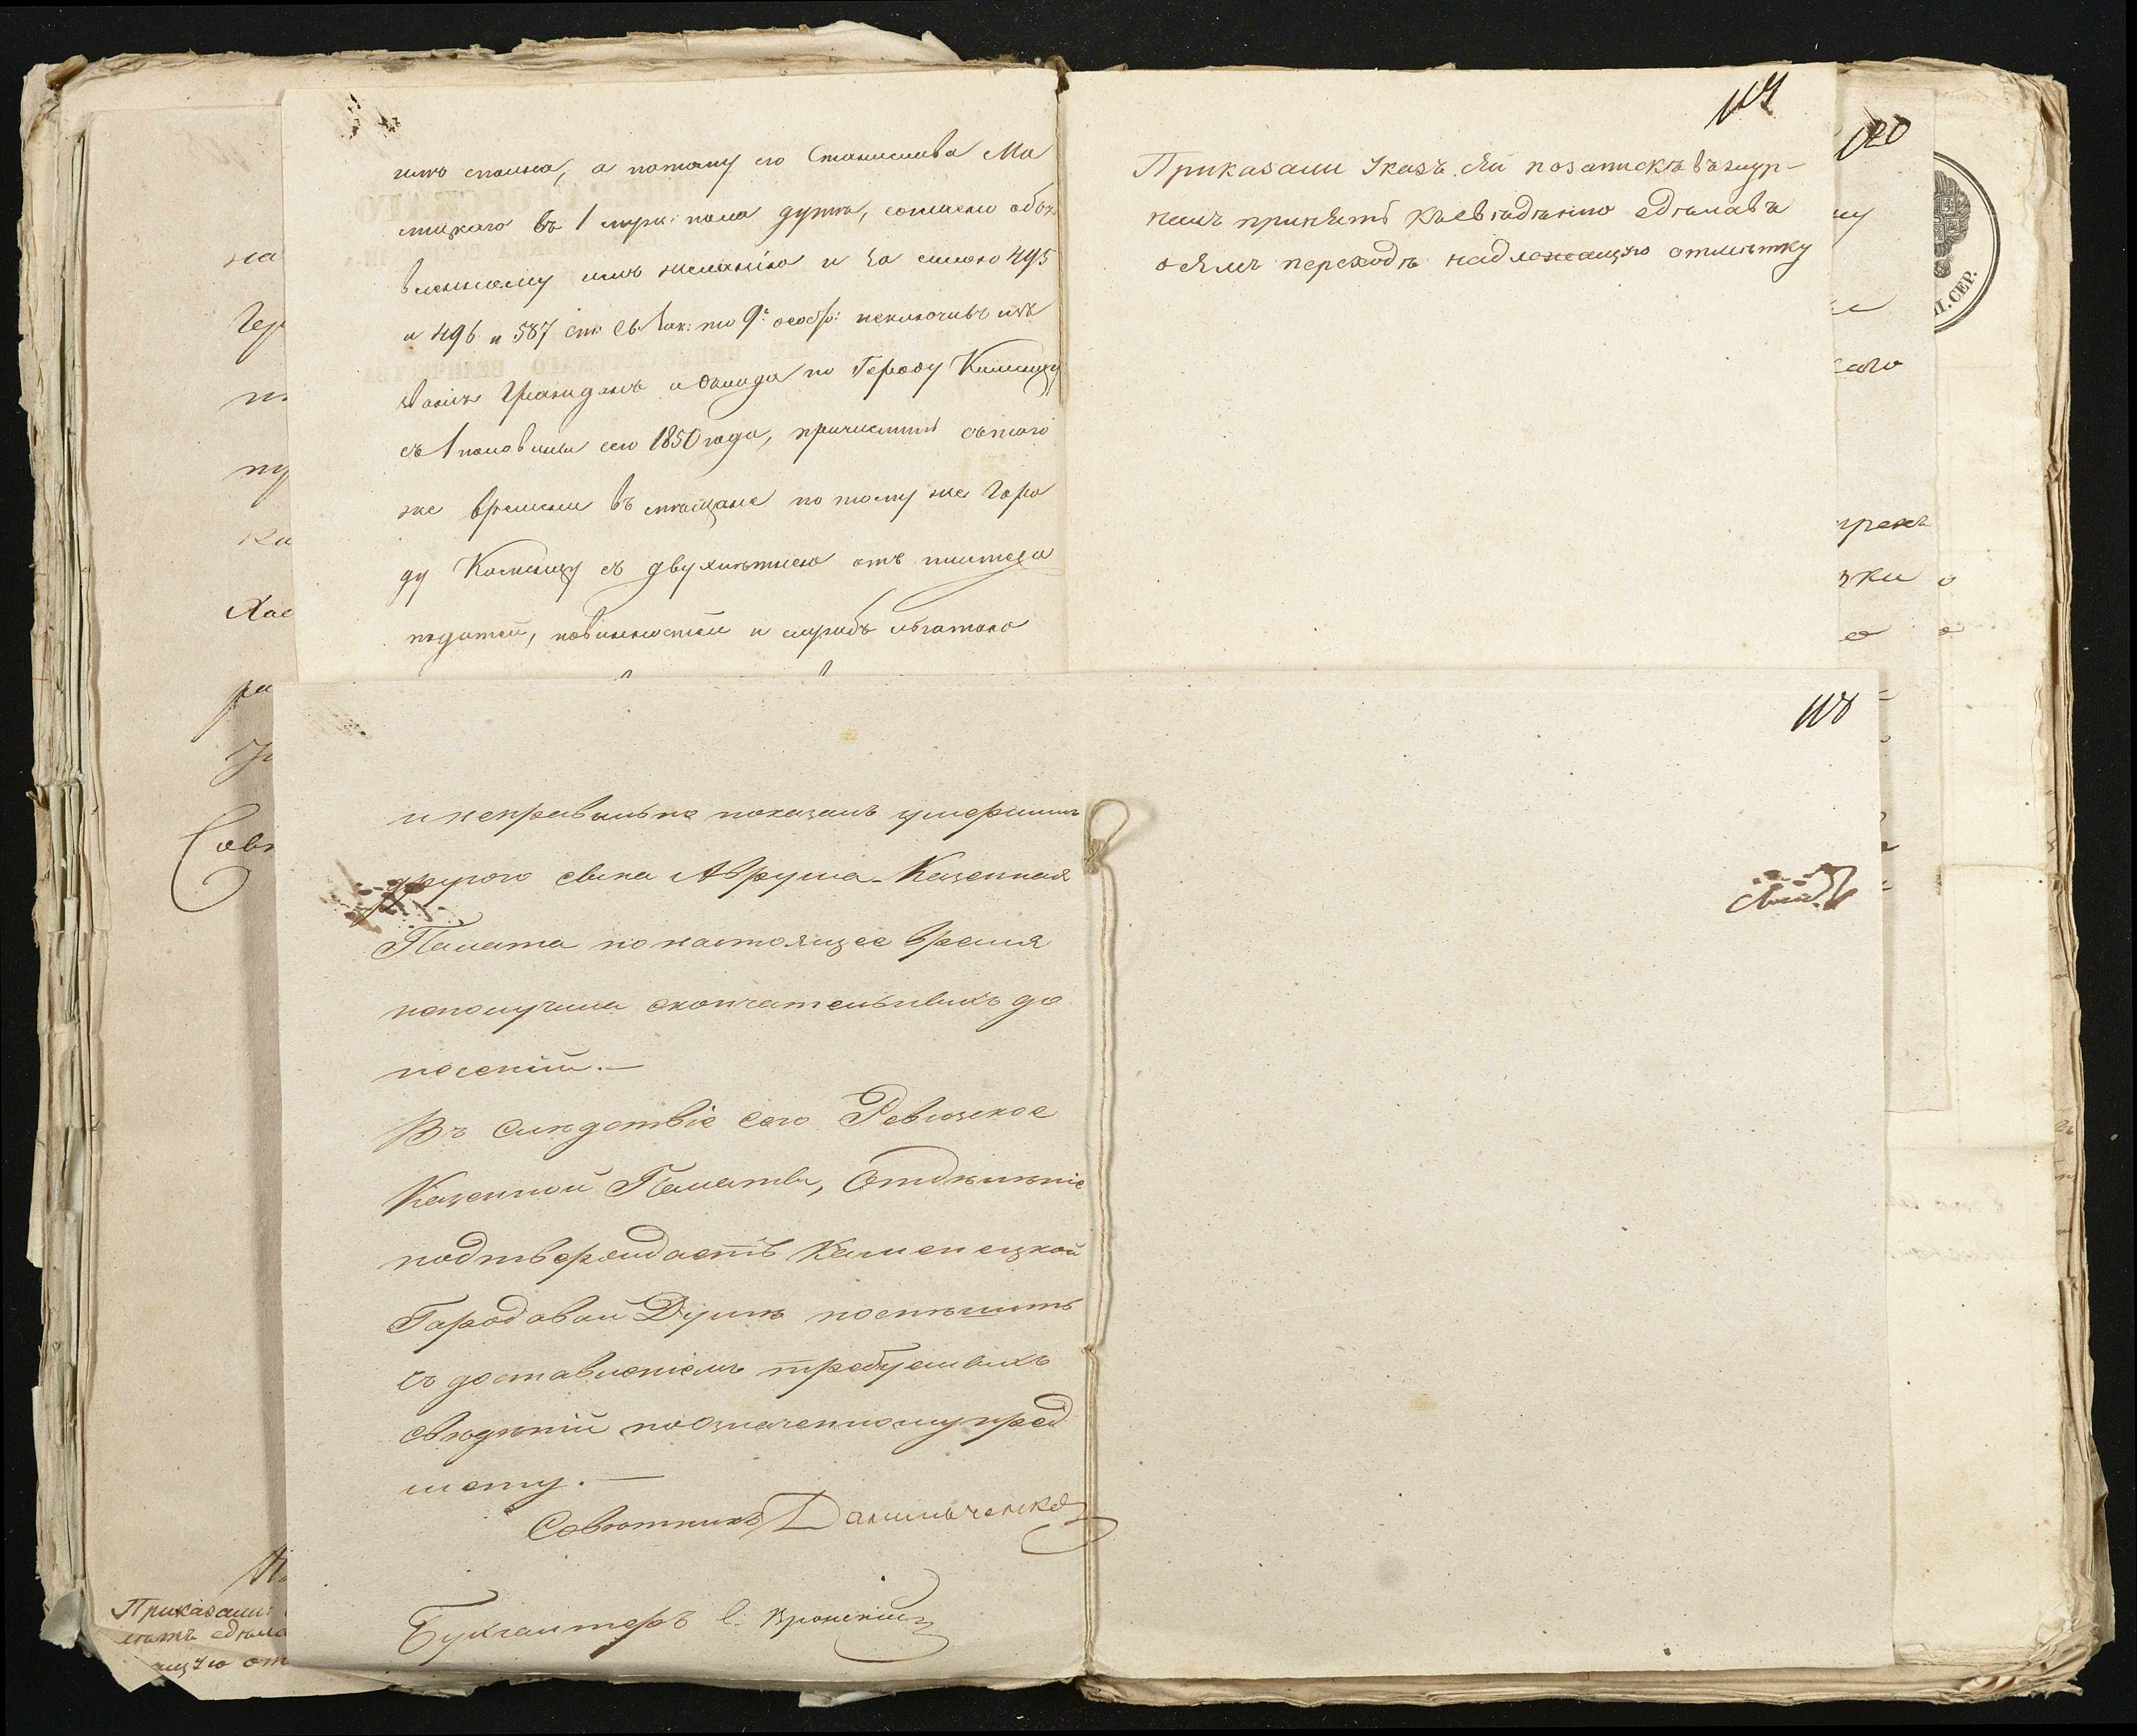 а потому его Станислава Ма
въ 1 муж: пола души, согласно объя
вленному имъ желанію и на 495
и 496 и 587 ст: Св. Зак: по 9: исключивъ изъ
званія Гражданъ и оклада по Городу Каменцу
съ 1 половины сего 1850 года, причислить съ того
же времени въ мѣщане по тому же Горо
ду Каменцу съ двухлѣтнею отъ платежа
податей, повинностей и службъ льготою
119
Приказали Указъ сей позапискѣ въ жур-
налъ принять къ свѣденію сделавъ
о семъ переходѣ надлежащую отмѣтку
120
118
и неправильно показанъ умершимъ
другого сына Аврума - Казенная
Палата по настоящее время
неполучила окончательныхъ до
несеній. —
Въ слѣдствіе сего Ревизское
Казенной Палаты, Отдѣленіе
подтверждаетъ Каменецкой
Городовой Думѣ поспѣшить
съ доставленіемъ требуемыхъ
свѣдѣній по означенному пред
мету. —
Совѣтникъ Данильченко
Бухгалтеръ
на
ну
ка
ра
Совѣ
Приказали:
сдѣла
щую от
П. СЕР.